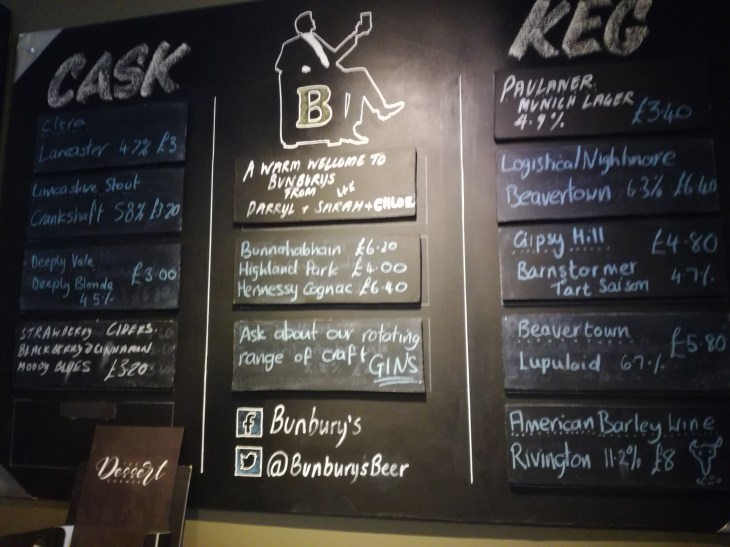 CASK
Citra
Lancaster 4.7% £3
Lancashire Stout
Crankshaft 5.8% £3.20
Deeply Vale
Deeply Blonde £3.00
4.5%
STRAWBERRY CIDERS.
BLACKBERRY & CINNAMON
MOODY BLUES £3.20
Dessert
B
A WARM WELCOME TO
BUNBURYS
FROM
DARRYL + SARAH + CHLOE
Bunnahabhain £6.20
Highland Park £4.00
Hennessy Cognac £6.40
Ask about our rotating
range of craft GINS
f Bunbury's
@BunburysBeer
KEG
PAULANER
MUNICH LAGER
4.9% £3.40
Logistical Nightmare
Beavertown 6.3% £6.40
Gipsy Hill £4.80
Barnstormer 4.7%
Tart Saison
Beavertown £5.80
Lupuloid 6.7%
American Barley Wine
Rivington 11.2% £8